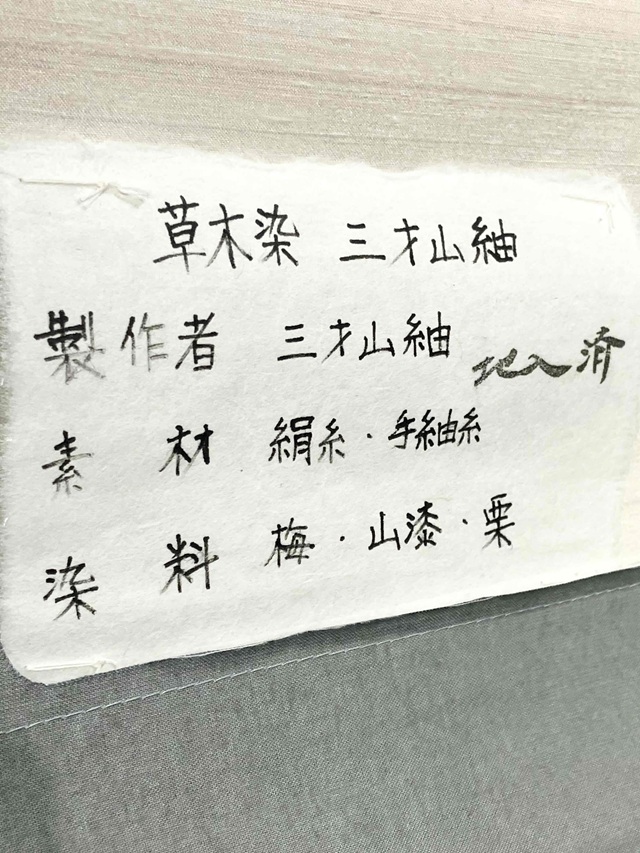 草木染 三才山紬
製作者 三才山紬 地入済
素材 絹糸・手紬糸
染料 梅・山漆・栗